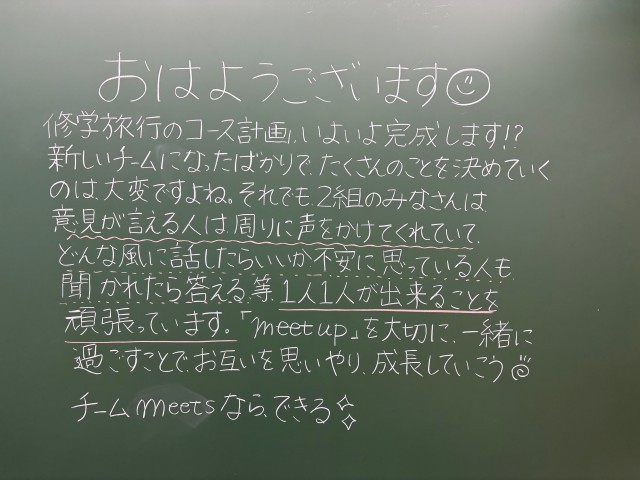 おはようございます
修学旅行のコース計画、いよいよ完成します!?
新しいチームになったばかりで、たくさんのことを決めていく
のは大変ですよね。それでも、2組のみなさんは
意見が言える人は周りに声をかけてくれていて、
どんな風に話したらいいか不安に思っている人も
聞かれたら答える等、1人1人が出来ることを
頑張っています。「meet up」を大切に、一緒に
過ごすことで、お互いを思いやり、成長していこう
チームmeetsなら、できる